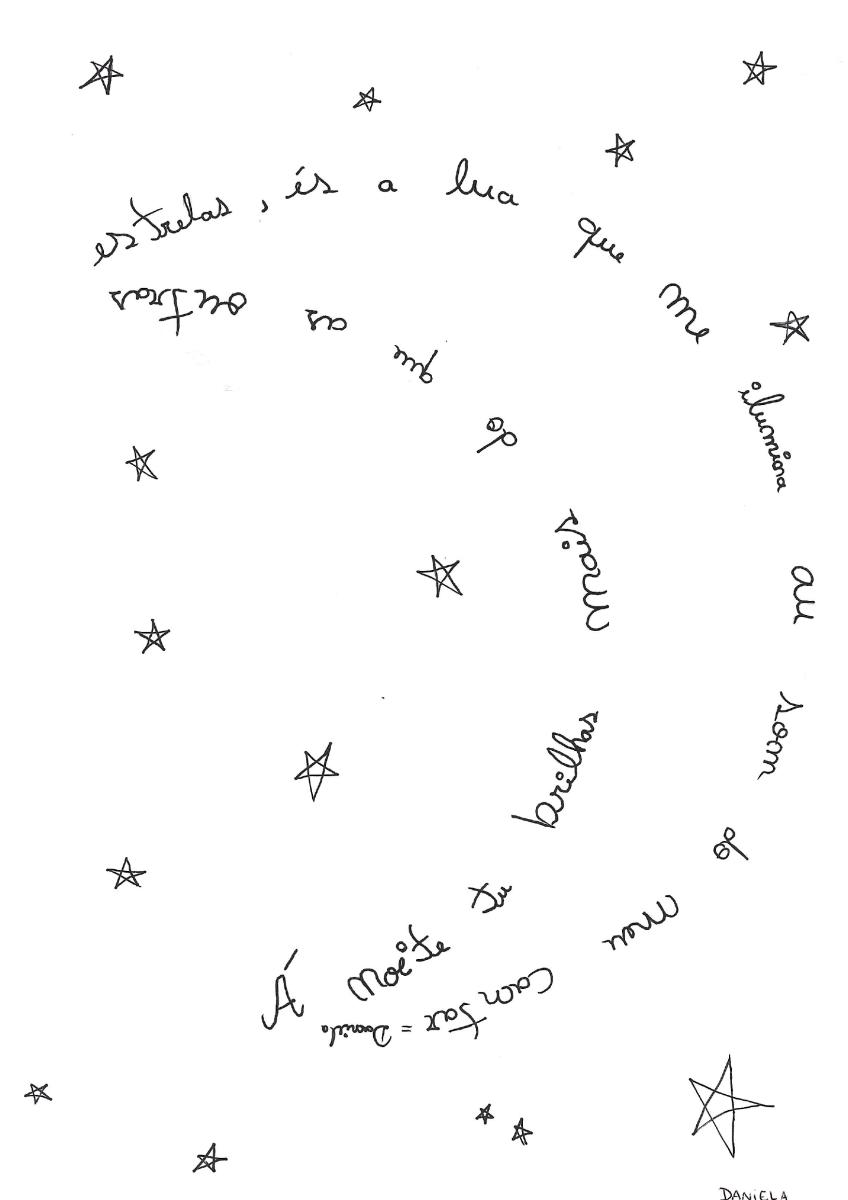 Á Noite tu brilhas mais do que as outras
estrelas, és a lua que me ilumina au som do meu Cantar = Daniela
DANIELA